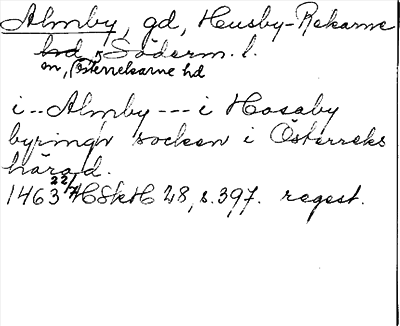 Almby, gd, Husby-Rekarne
hd, Söderm. l.
sn, Österrekarne hd
i -- Almby --- i Hosaby
byringh socken i Österreks
härad.
1463 22/7 HSkH 48, s. 397. regest.